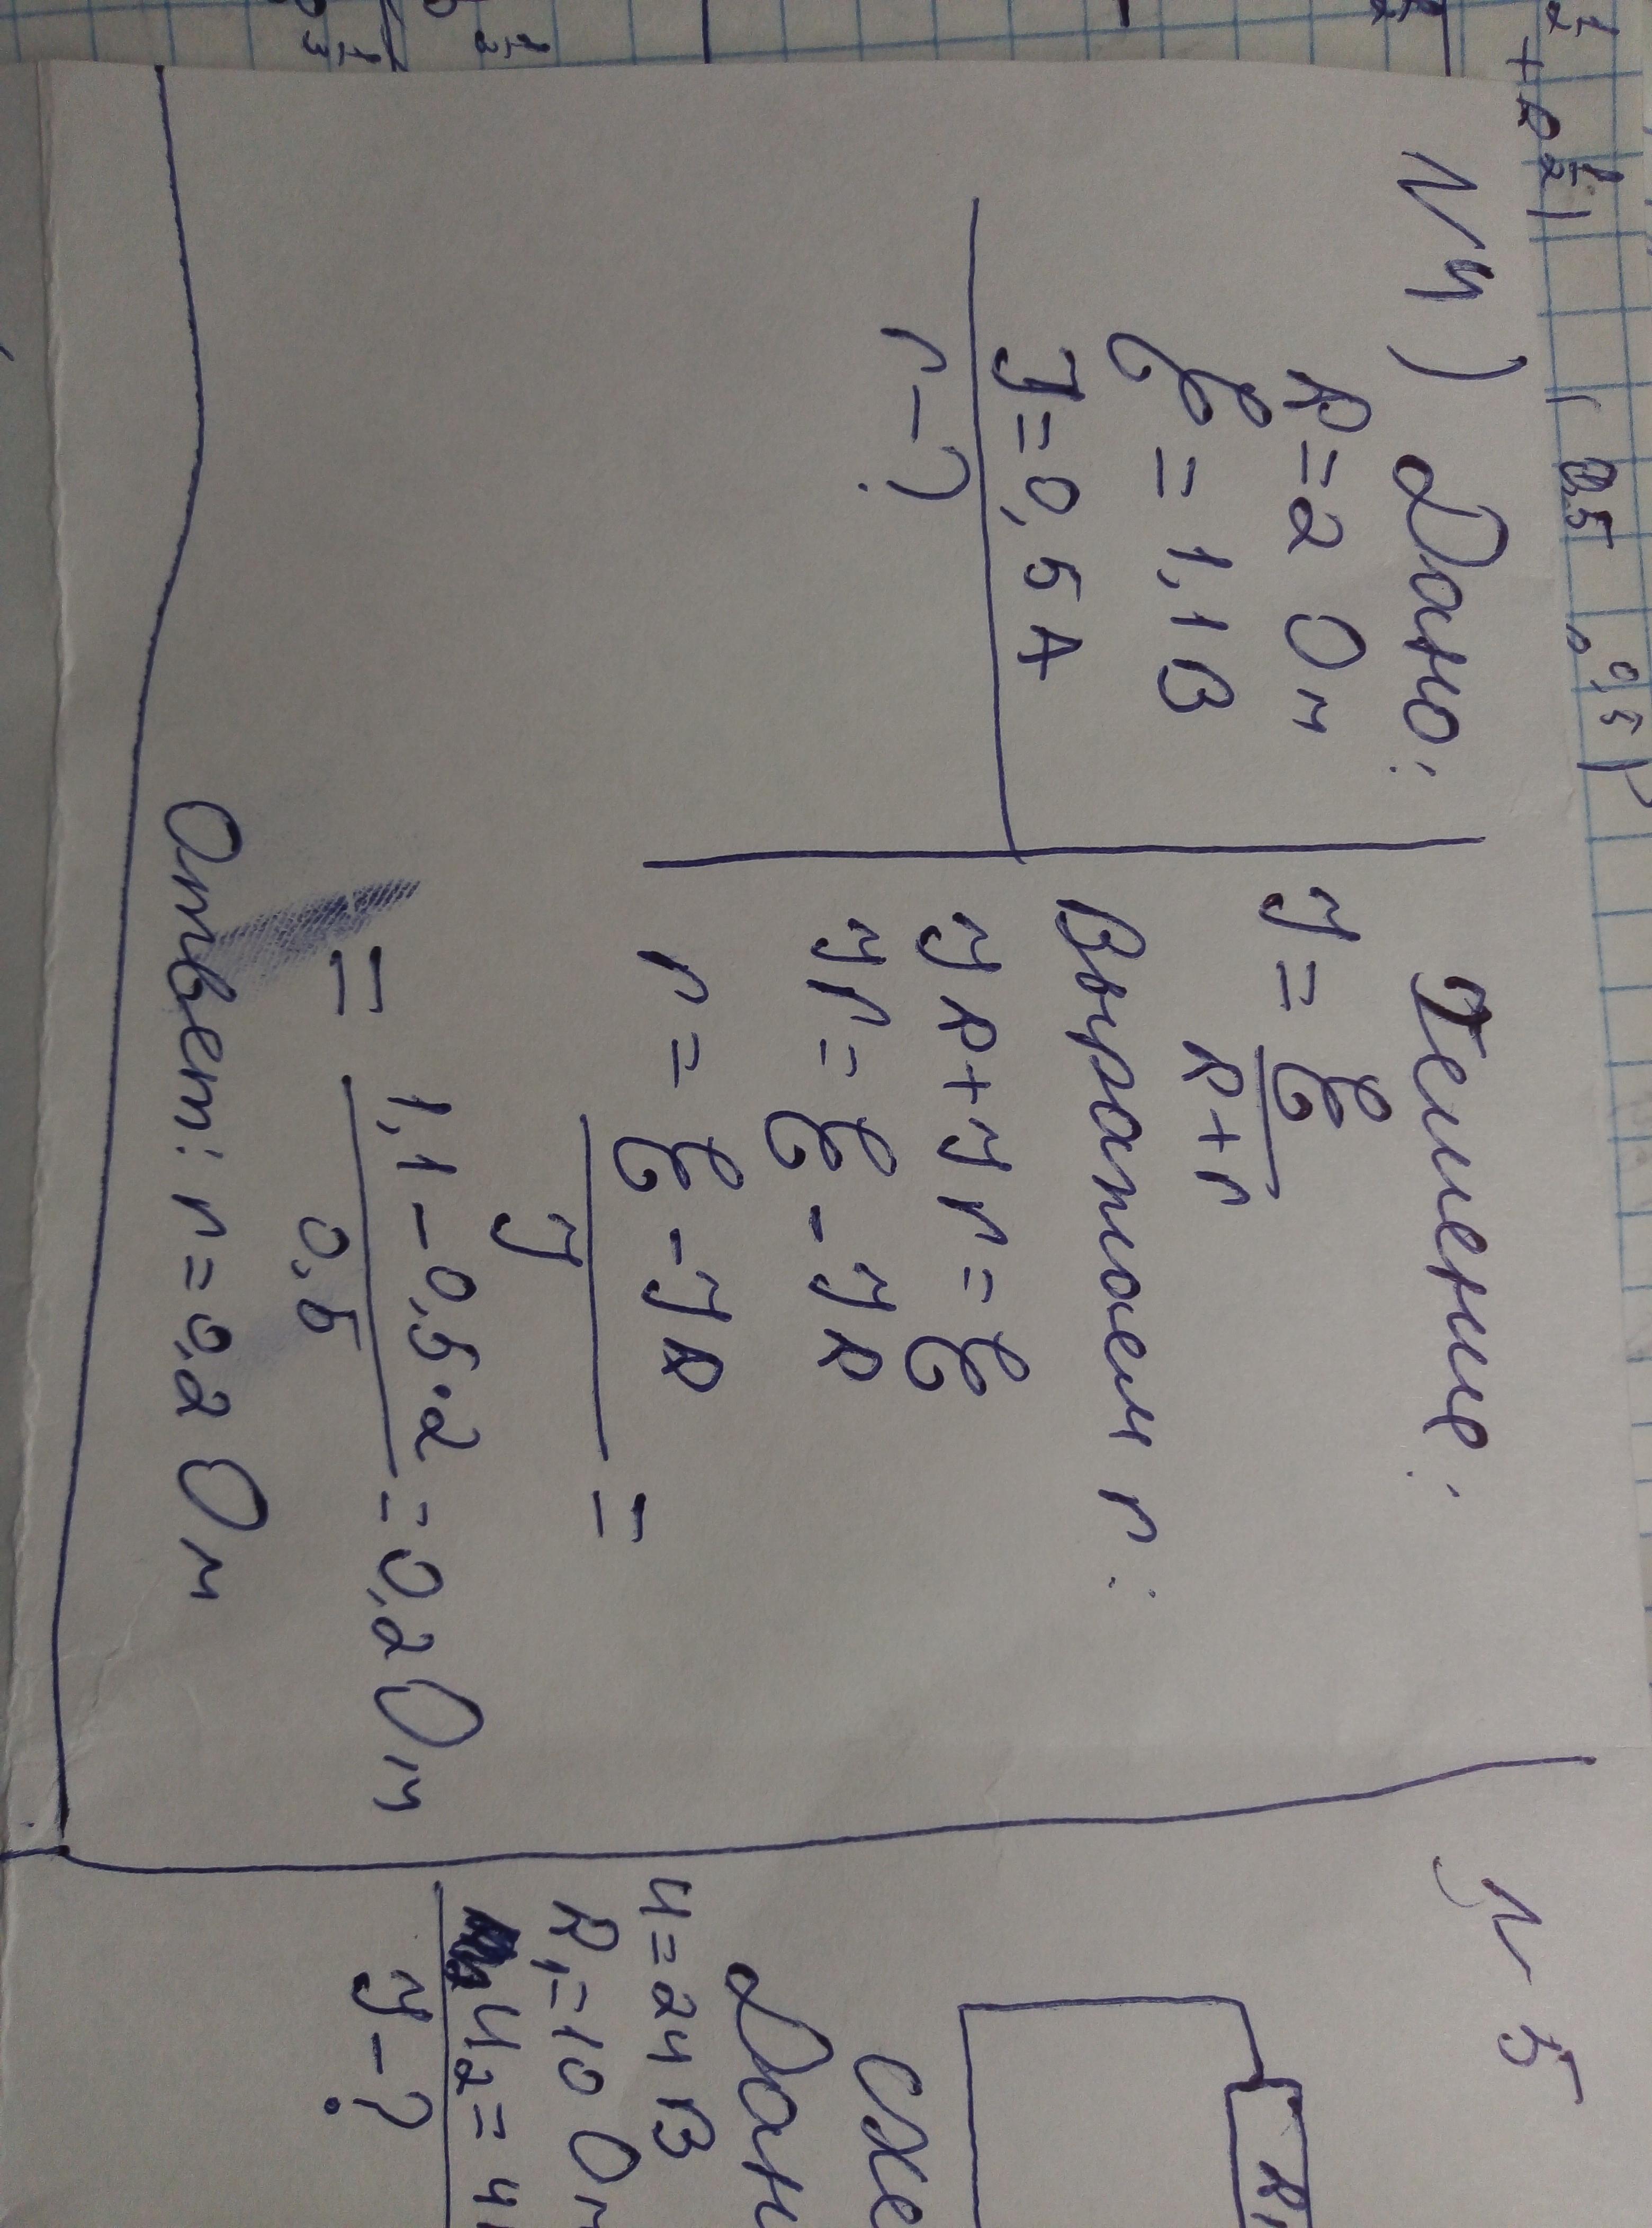 N4) Дано:
R=2 Ом
ℰ=1,1В
J=0,5А
r-?
Решение:
J=ℰ/(R+r)
Выражаем r:
JR+Jr=ℰ
Jr=ℰ-JR
r=(ℰ-JR)/J=
=(1,1-0,5·2)/0,5=0,2Ом
Ответ: r=0,2 Ом
N 5
R1
U=24В
R1=10 О
U2=4
J-?